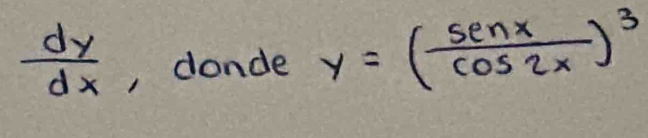 dy/dx, donde y = (senx/cos2x)^3